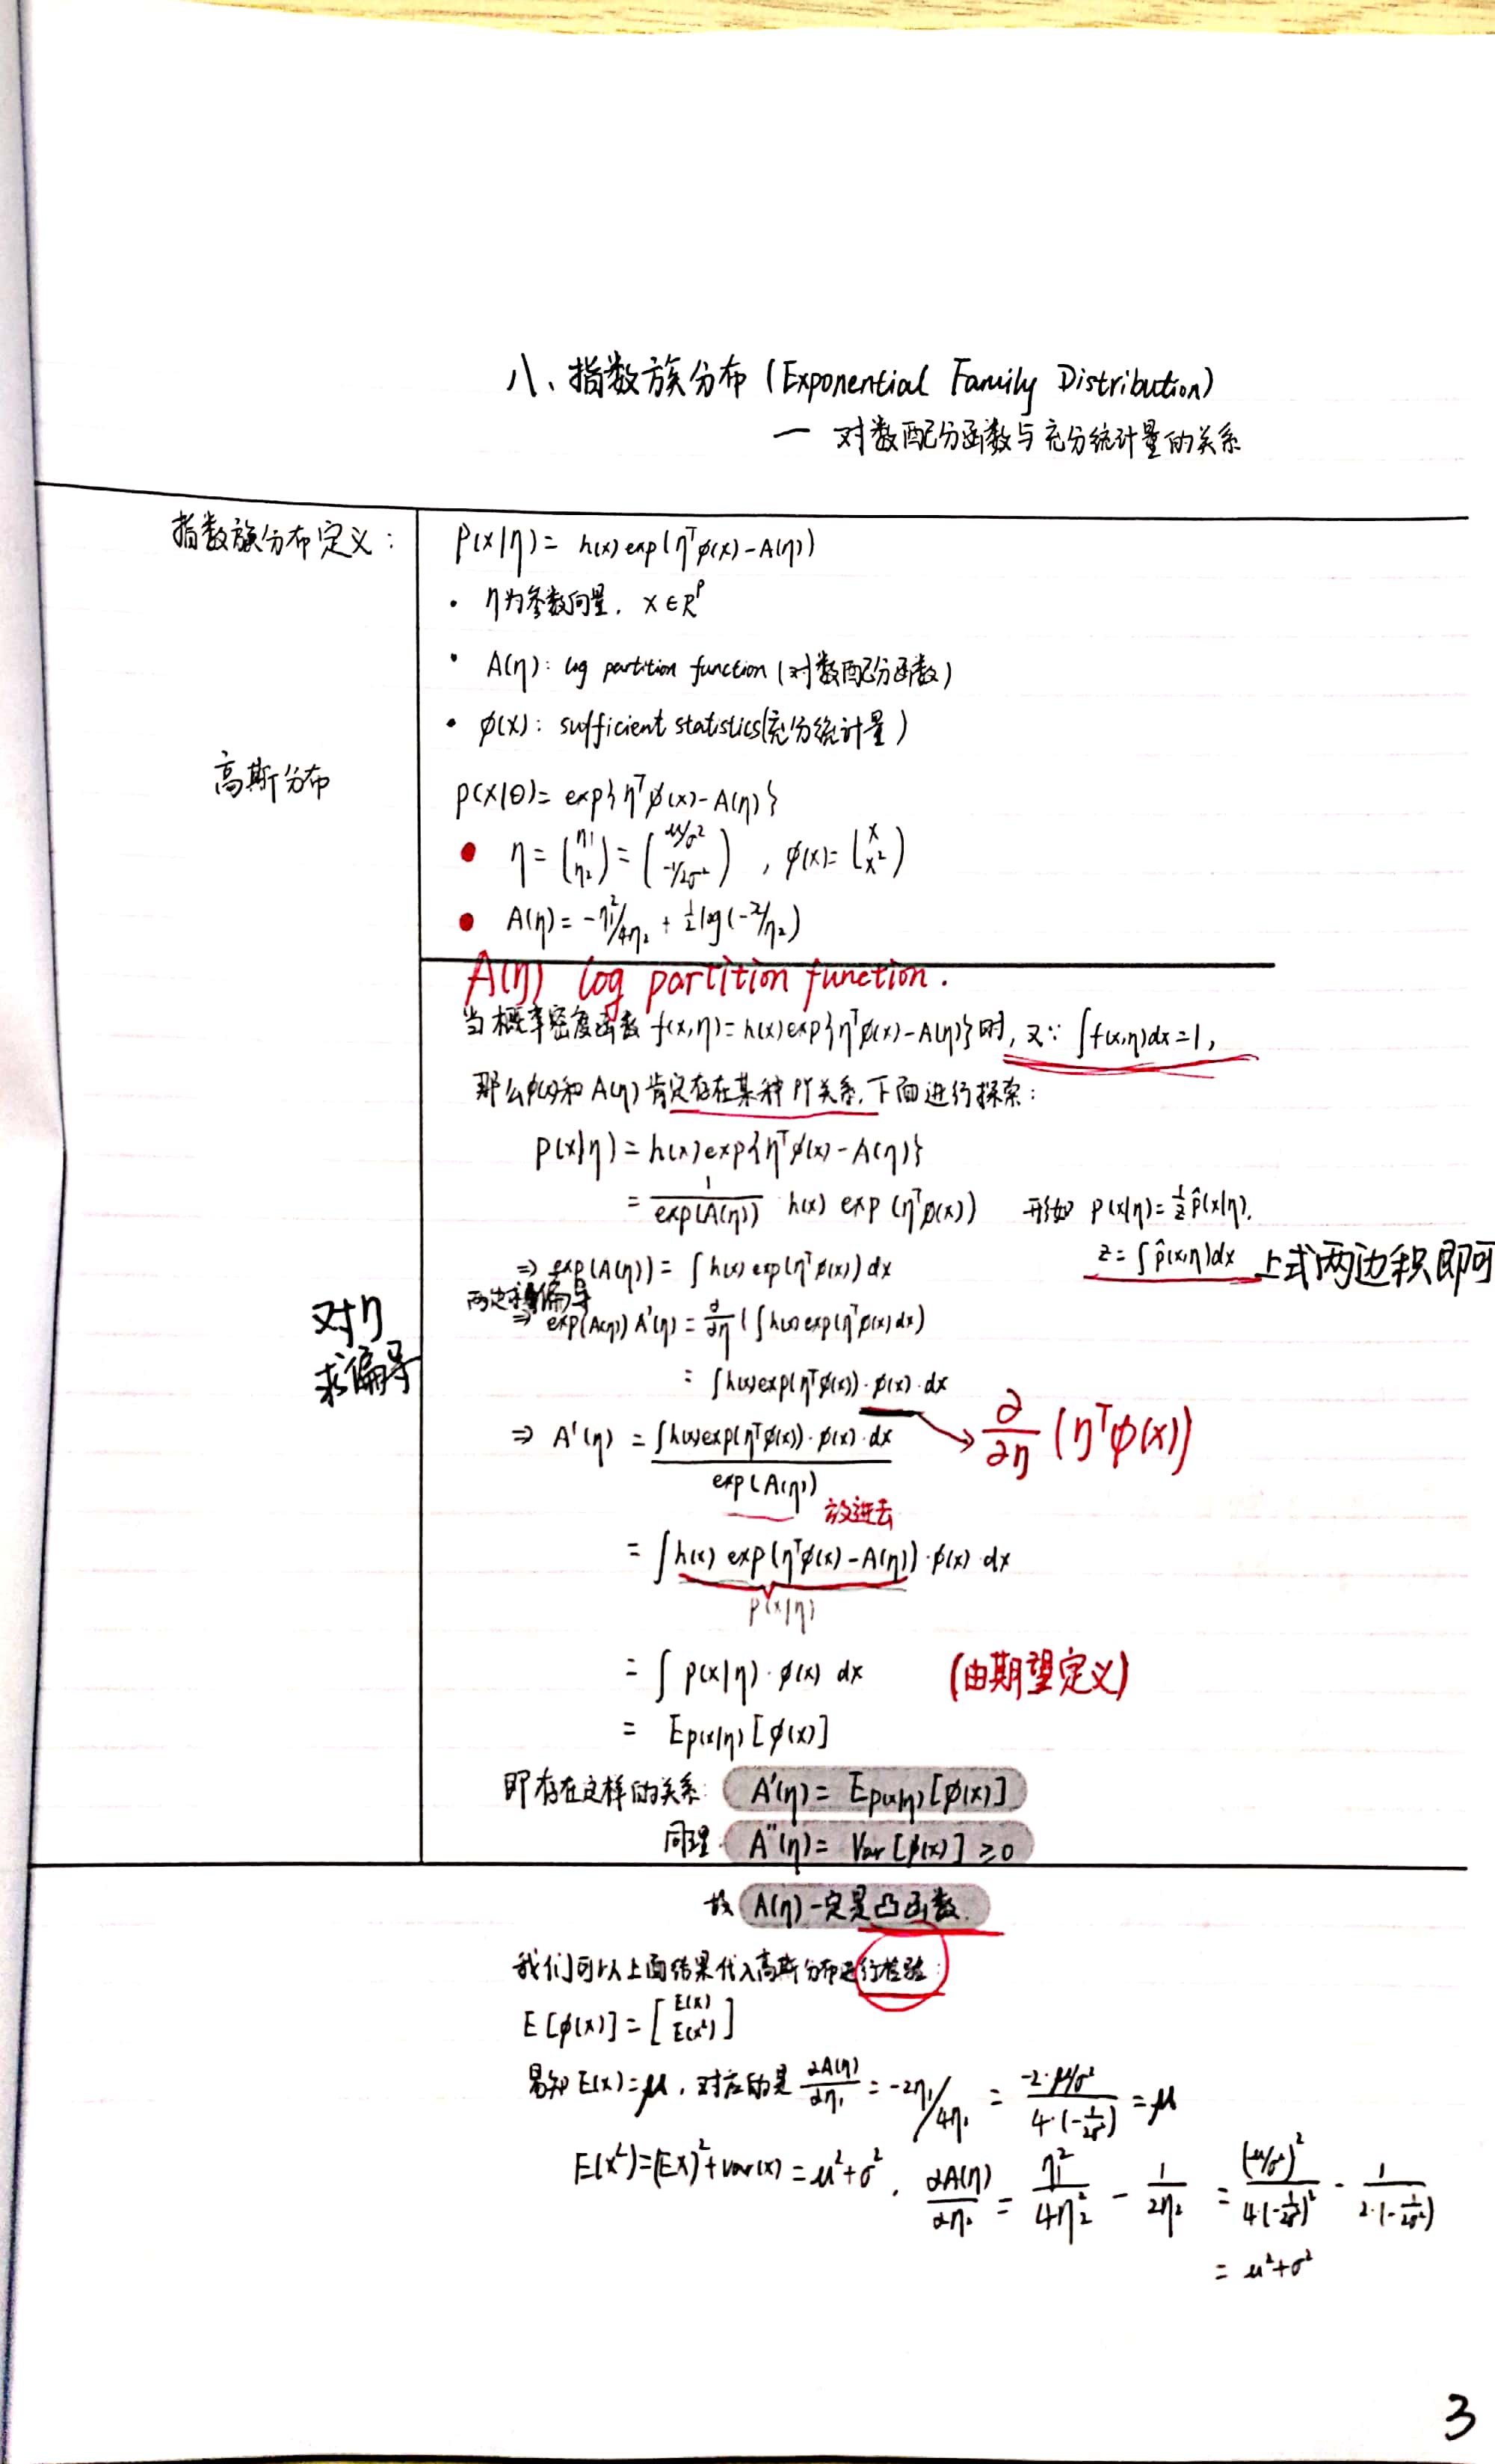 八、指数族分布 (Exponential Family Distribution)
— 对数配分函数与充分统计量的关系
指数族分布定义：
P(x|η) = h(x) exp(η^T φ(x) - A(η))
• η为参数向量, x ∈ R^p
• A(η): log partition function (对数配分函数)
• φ(x): sufficient statistics(充分统计量)
高斯分布
P(x|θ) = exp{η^T φ(x) - A(η)}
• η = (η1 η2) = (μ/σ² -1/2σ²), φ(x) = (x x²)
• A(η) = -η1²/4η2 + 1/2 log(-π/η2)
A(η) log partition function.
当概率密度函数 f(x,η) = h(x) exp{η^T φ(x) - A(η)}时, 又∵ ∫f(x,η)dx = 1,
那么φ(x)和A(η)肯定存在某种关系, 下面进行探索:
P(x|η) = h(x) exp{η^T φ(x) - A(η)}
= 1/exp(A(η)) · h(x) exp(η^T φ(x)) 形如 p(x|η) = 1/z p̂(x|η).
z = ∫p̂(x,η)dx 上式两边积即可
⇒ exp(A(η)) = ∫h(x) exp(η^T φ(x)) dx
对η
求偏导
⇒ exp(A(η)) A'(η) = ∂/∂η (∫h(x) exp(η^T φ(x) dx)
= ∫h(x) exp(η^T φ(x)) · φ(x) · dx
∂/∂η (η^T φ(x))
⇒ A'(η) = ∫h(x) exp(η^T φ(x)) · φ(x) · dx / exp(A(η))
放进去
= ∫h(x) exp(η^T φ(x) - A(η)) · φ(x) · dx
P(x|η)
= ∫ P(x|η) · φ(x) dx (由期望定义)
= E_P(x|η) [φ(x)]
即存在这样的关系: A'(η) = E_P(x|η) [φ(x)]
同理: A''(η) = Var[φ(x)] ≥ 0
故 A(η)一定是凸函数.
我们可以上面结果代入高斯分布进行检验:
E[φ(x)] = [E(x) E(x²)]
易知 E(x) = μ, 对应的是 ∂A(η)/∂η1 = -2η1/4η1 = -2·μ/σ² / 4·(-1/2σ²) = μ
E(x²) = (EX)² + Var(x) = μ² + σ², ∂A(η)/∂η2 = η1²/4η2² - 1/2η2 = (μ/σ²)²/4·(-1/2σ²)² - 1/2·(-1/2σ²)
= μ² + σ²
3